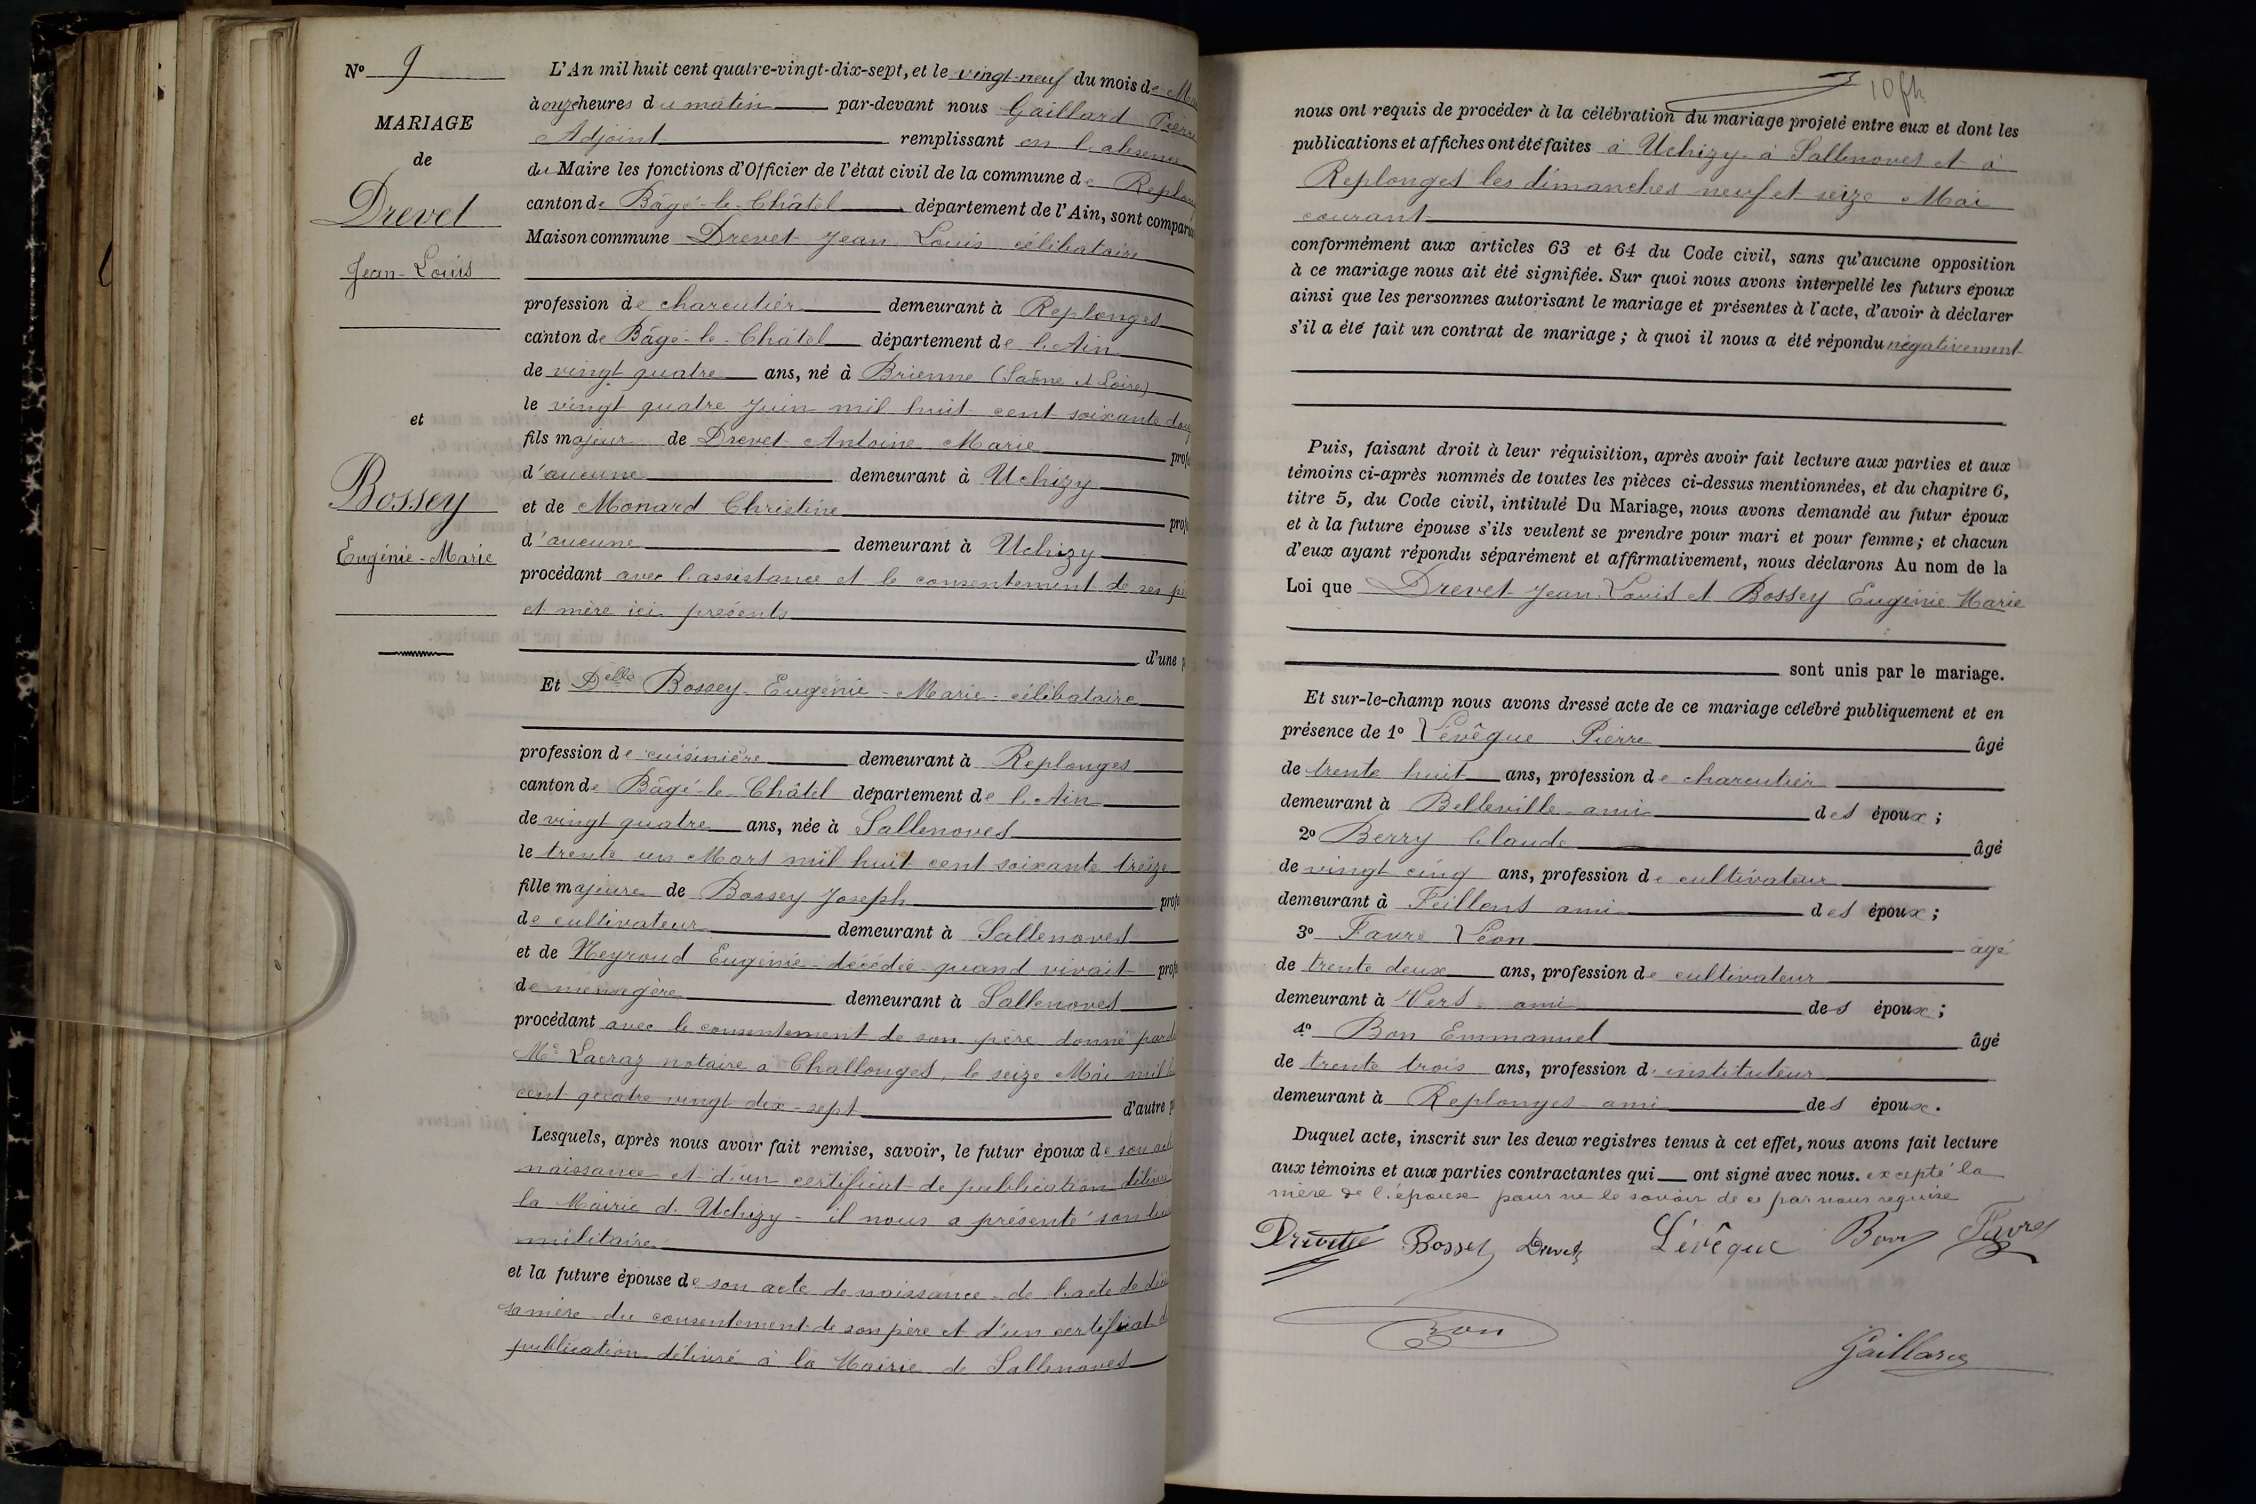 Nº 9
MARIAGE
de
Drevet
Jean-Louis
et
Bossey
Eugénie-Marie
L'An mil huit cent quatre-vingt-dix-sept, et le vingt-neuf du mois de
à onze heures du matin par-devant nous Gaillard Pierre
Adjoint remplissant en l'absence
du Maire les fonctions d'Officier de l'état civil de la commune de Replon
canton de Bâgé-le-Châtel département de l'Ain, sont comparu
Maison commune Drevet Jean Louis célibataire
profession de charcutier demeurant à Replonges
canton de Bâgé-le-Châtel département de l'Ain
de vingt quatre ans, né à Brienne (Saône et Loire)
le vingt quatre Juin mil huit cent soixante douz
fils majeur de Drevet Antoine Marie prof
d'aucune demeurant à Uchizy
et de Monard Christine prof
d'aucune demeurant à Uchizy
procédant avec l'assistance et le consentement de ses pè
et mère ici présents
d'une p
Et Delle Bossey Eugénie-Marie célibataire
profession de cuisinière demeurant à Replonges
canton de Bâgé-le-Châtel département de l'Ain
de vingt quatre ans, née à Sallenoves
le trente un Mars mil huit cent soixante treize
fille majeure de Bossey Joseph prof
de cultivateur demeurant à Sallenoves
et de Neyroud Eugénie décédée quand vivait prof
de ménagère demeurant à Sallenoves
procédant avec le consentement de son père donné par d
Me Lacraz notaire à Challonges, le seize Mai mil h
cent quatre vingt dix-sept d'autre p
Lesquels, après nous avoir fait remise, savoir, le futur époux de son act
naissance et d'un certificat de publication délivré
la Mairie d'Uchizy - il nous a présenté son liv
militaire
et la future épouse de son acte de naissance - de l'acte de déc
sa mère du consentement de son père et d'un certificat d
publication délivré à la Mairie de Sallenoves
10 fh
nous ont requis de procéder à la célébration du mariage projeté entre eux et dont les
publications et affiches ont été faites à Uchizy - à Sallenoves et à
Replonges les dimanches neuf et seize Mai
courant
conformément aux articles 63 et 64 du Code civil, sans qu'aucune opposition
à ce mariage nous ait été signifiée. Sur quoi nous avons interpellé les futurs époux
ainsi que les personnes autorisant le mariage et présentes à l'acte, d'avoir à déclarer
s'il a été fait un contrat de mariage ; à quoi il nous a été répondu négativement
Puis, faisant droit à leur réquisition, après avoir fait lecture aux parties et aux
témoins ci-après nommés de toutes les pièces ci-dessus mentionnées, et du chapitre 6,
titre 5, du Code civil, intitulé Du Mariage, nous avons demandé au futur époux
et à la future épouse s'ils veulent se prendre pour mari et pour femme ; et chacun
d'eux ayant répondu séparément et affirmativement, nous déclarons Au nom de la
Loi que Drevet Jean Louis et Bossey Eugénie Marie
sont unis par le mariage.
Et sur-le-champ nous avons dressé acte de ce mariage célébré publiquement et en
présence de 1º Lévêque Pierre âgé
de trente huit ans, profession de charcutier
demeurant à Belleville ami des époux ;
2º Berry Claude âgé
de vingt cinq ans, profession de cultivateur
demeurant à Feillens ami des époux ;
3º Favre Léon âgé
de trente deux ans, profession de cultivateur
demeurant à Vers ami des époux ;
4º Bon Emmanuel âgé
de trente trois ans, profession d'instituteur
demeurant à Replonges ami des époux.
Duquel acte, inscrit sur les deux registres tenus à cet effet, nous avons fait lecture
aux témoins et aux parties contractantes qui ont signé avec nous. excepté la
mère de l'époux pour ne le savoir de ce par nous requise
Bossey Drevet Lévêque Favre
Bon
Gaillard